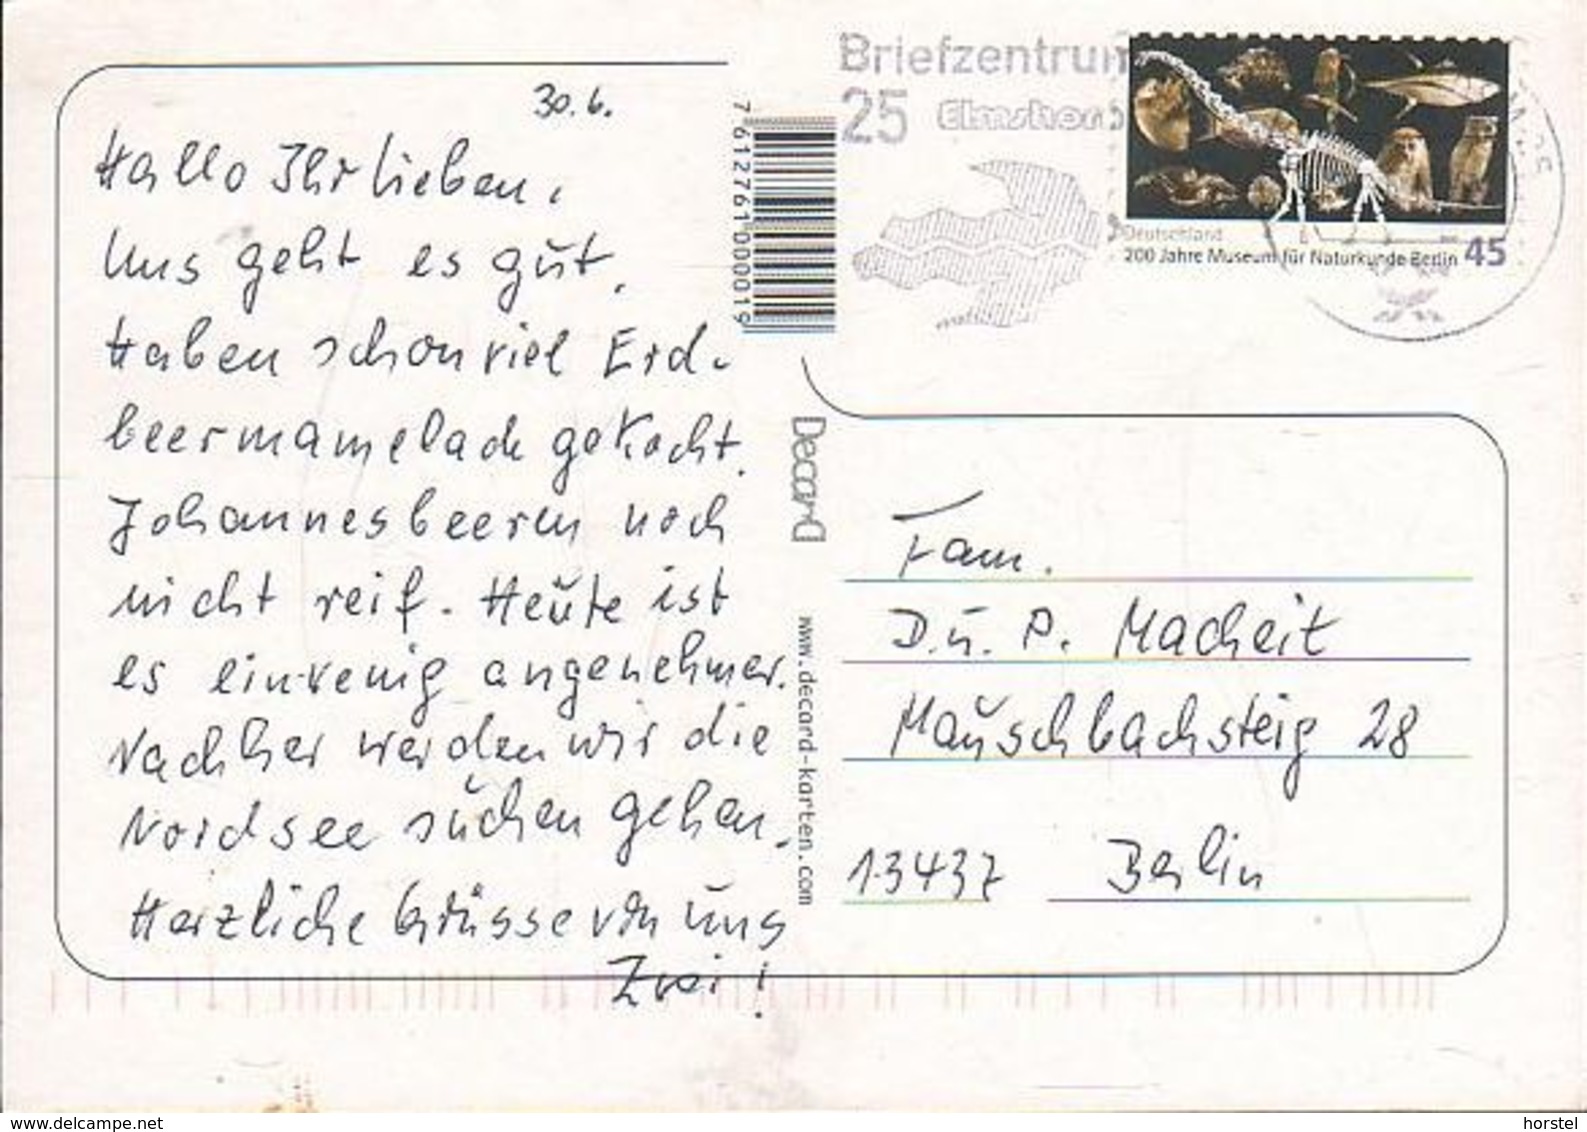 30.6.
Hallo Ihr Lieben,
Uns geht es gut.
Haben schon viel Erd-
beermamelade gekocht.
Johannesbeeren noch
nicht reif. Heute ist
es ein wenig angenehmer.
Nachher werden wir die
Nordsee suchen gehen.
Herzliche Grüsse von uns
Zwei!
7 612761 000019
Decard
www.decard-karten.com
Briefzentrum
25 Elmshorn
Deutschland
200 Jahre Museum für Naturkunde Berlin 45
Fam.
D. u. P. Macheit
Mauschbachsteig 28
13437 Berlin
www.delcampe.net
horstel